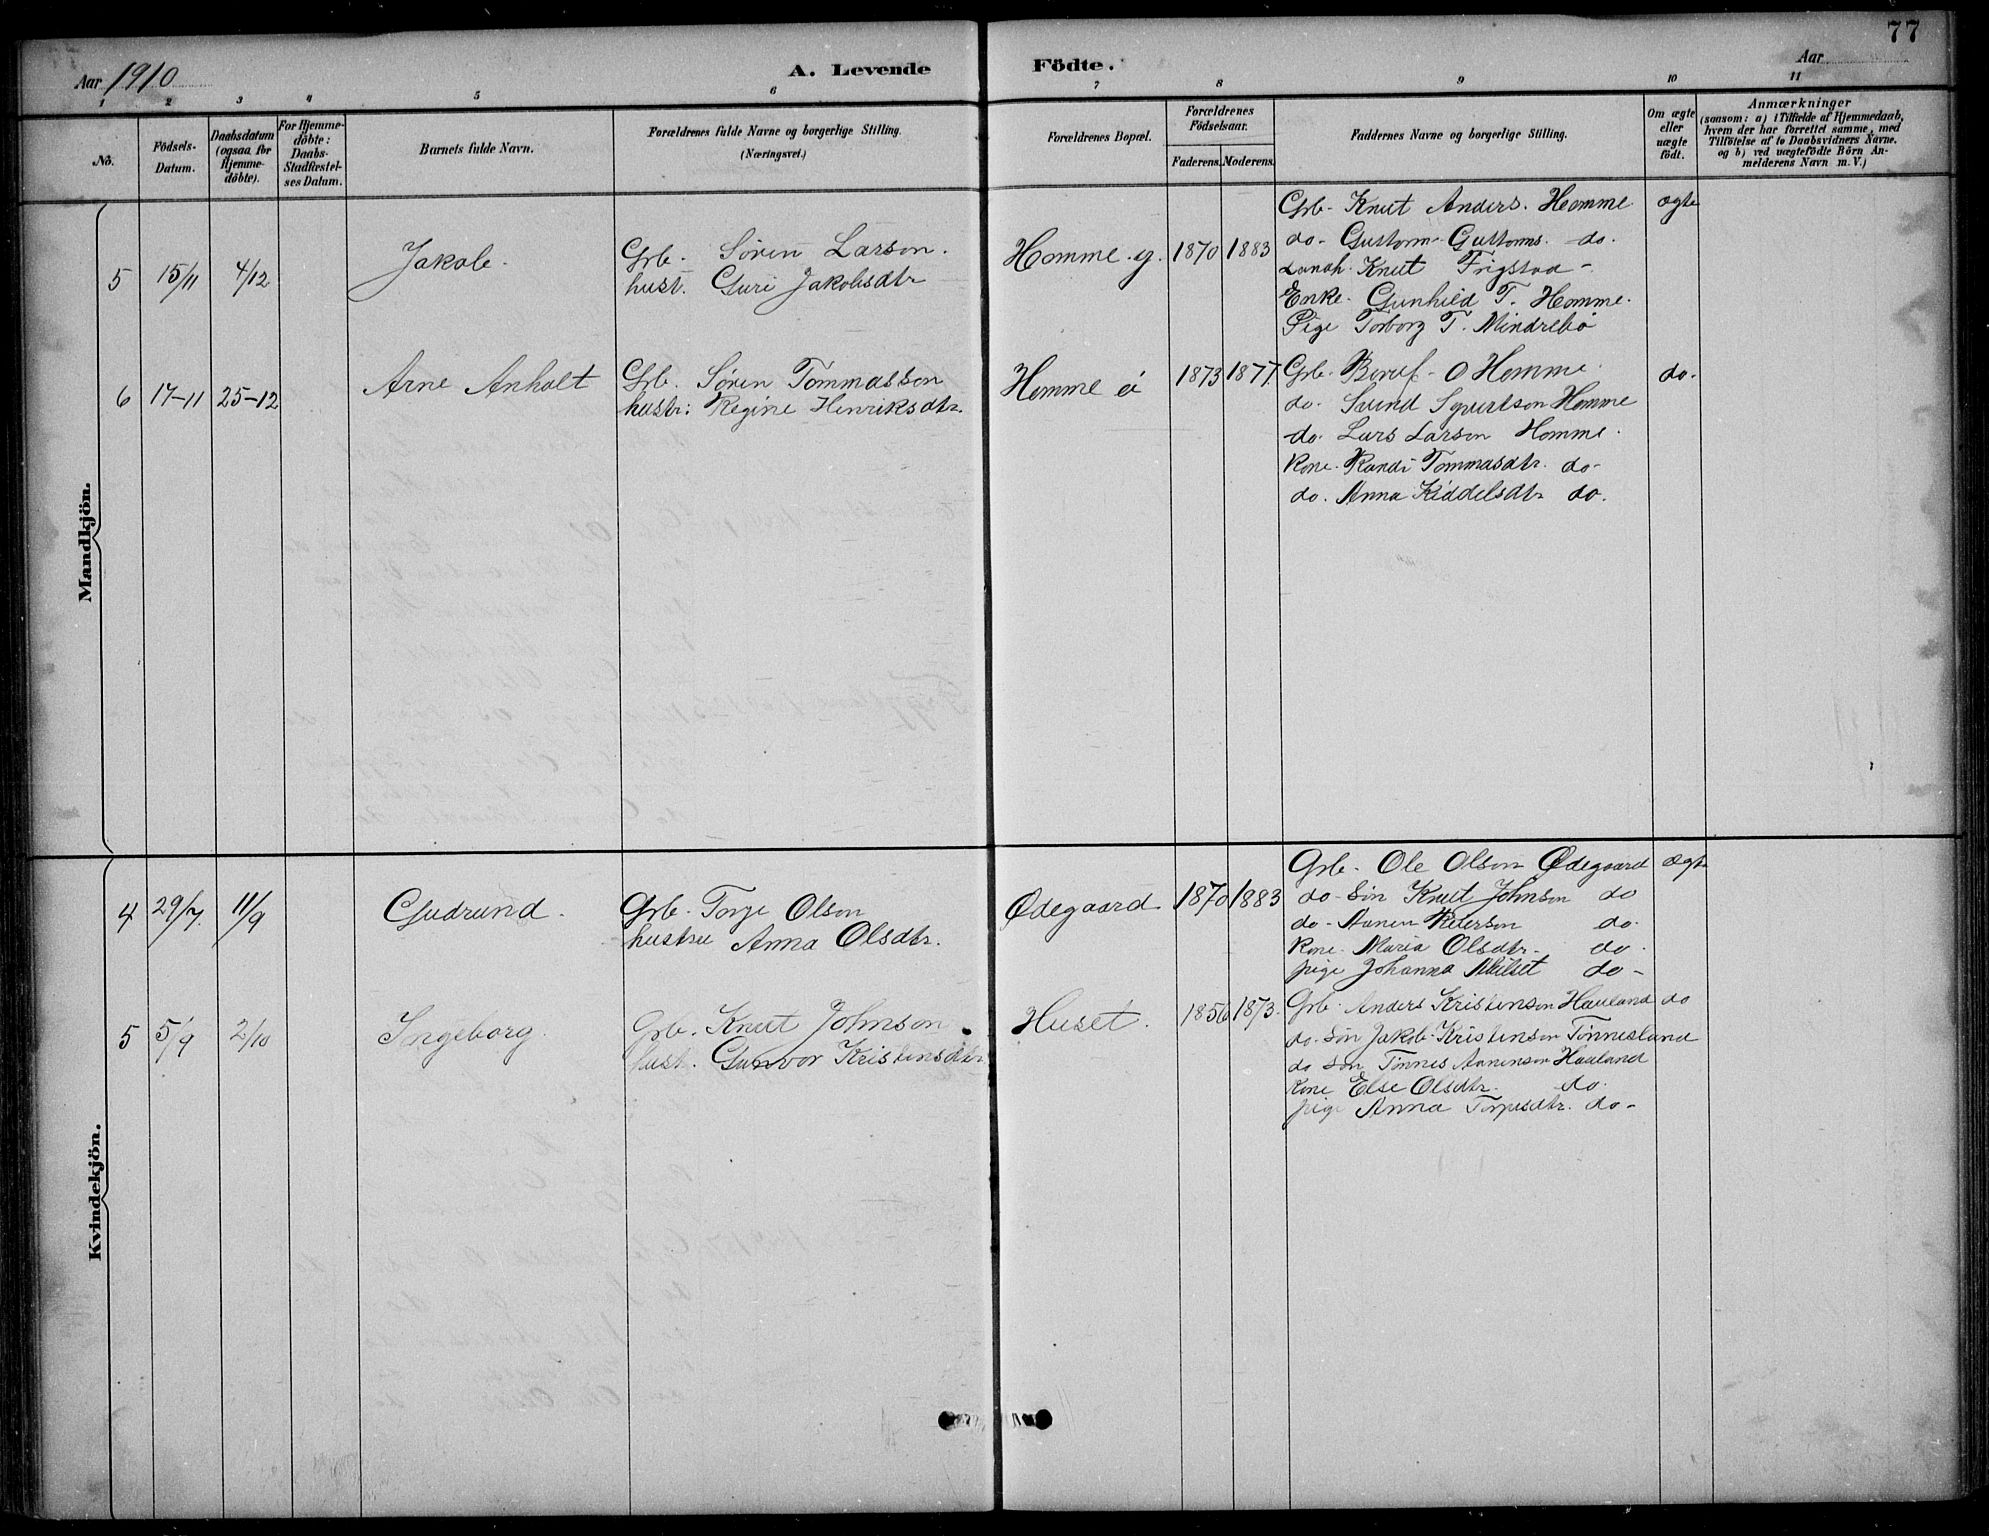 77
Aar 1910
A. Levende Födte.
Aar
1 2 3 4 5 6 7 8 9 10 11
No.
Födsels-Datum.
Daabsdatum (ogsaa for Hjemme-döbte).
For Hjemme-döbte: Daabs-Stadfæstel-ses Datum.
Barnets fulde Navn.
Forældrenes fulde Navne og borgerlige Stilling.
(Næringsvei.)
Forældrenes Bopæl.
Forældrenes Födselsaar.
Faderens. Moderens.
Faddernes Navne og borgerlige Stilling.
Om ægte eller uægte födt.
Anmærkninger
(saasom: a) i Tilfælde af Hjemmedaab,
hvem der har forrettet samme, med
Tilföielse af to Daabsvidners Navne.
og b) ved uægtefödte Börn An-
melderens Navn m. V.)
Mandkjön.
5 15/11 4/12 Jakob. Grb. Sören Larson.
hust. Guri Jakobsdtr
Homme. g. 1870 1883
Grb. Knut Anders. Homme ægte
do. Guttorm Guttorms. do.
Landh. Knut Frigstad
Enke. Gunhild T. Homme.
Pige Torborg T. Mindrebö
6 17-11 25-12 Arne Anholt Grb. Sören Tommasson
hustr: Regine Henriksdtr.
Homme 1873 1877.
Grb. O Homme. do.
do. Homme
do. Lars Larson Homme.
Kone. Randi Tommasdtr. do-
do. Anna Kiddelsdtr do.
Kvindekjön.
4 29/7. 11/9 Gudrund. Grb. Torje Olson
hustru Anna Olsdtr.
Ødegaard 1870 1883
Grb. Ole Olson Ødegaard ægte
do- Sön Knut Johnson do
do- Aanen Peterson do.
Kone. Maria Olsdtr. do.
pige Johanna do-
5 5/9 2/10 Ingeborg. Grb. Knut Johnson
hust. Gunvor Kristensdtr.
Huset. 1856 1873.
Grb. Anders Kristenson Hauland do
do. Sön Jakob Kristenson Tönnesland
do Sön Tönnes Aanenson Hauland
Kone Else Olsdtr. do.
pige Anna Torjusdtr. do-